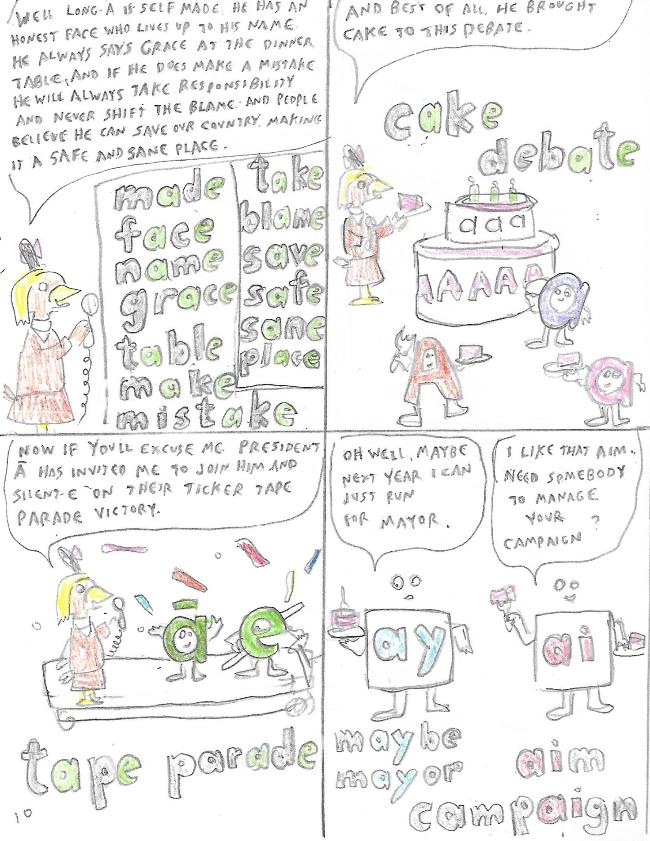 WELL LONG-A IS SELF MADE. HE HAS AN
HONEST FACE WHO LIVES UP TO HIS NAME.
HE ALWAYS SAYS GRACE AT THE DINNER
TABLE, AND IF HE DOES MAKE A MISTAKE
HE WILL ALWAYS TAKE RESPONSIBILITY
AND NEVER SHIFT THE BLAME. AND PEOPLE
BELIEVE HE CAN SAVE OUR COUNTRY. MAKING
IT A SAFE AND SANE PLACE.
made
face
name
grace
table
make
mistake
take
blame
save
safe
sane
place
AND BEST OF ALL, HE BROUGHT
CAKE TO THIS DEBATE.
cake
debate
a a a
A A A A A
a
A
a
NOW IF YOU'LL EXCUSE ME PRESIDENT
Ā HAS INVITED ME TO JOIN HIM AND
SILENT-E ON THEIR TICKER TAPE
PARADE VICTORY.
ā e
tape parade
10
OH WELL, MAYBE
NEXT YEAR I CAN
JUST RUN
FOR MAYOR.
ay
maybe
mayor
I LIKE THAT AIM.
NEED SOMEBODY
TO MANAGE
YOUR
CAMPAIGN ?
ai
aim
campaign